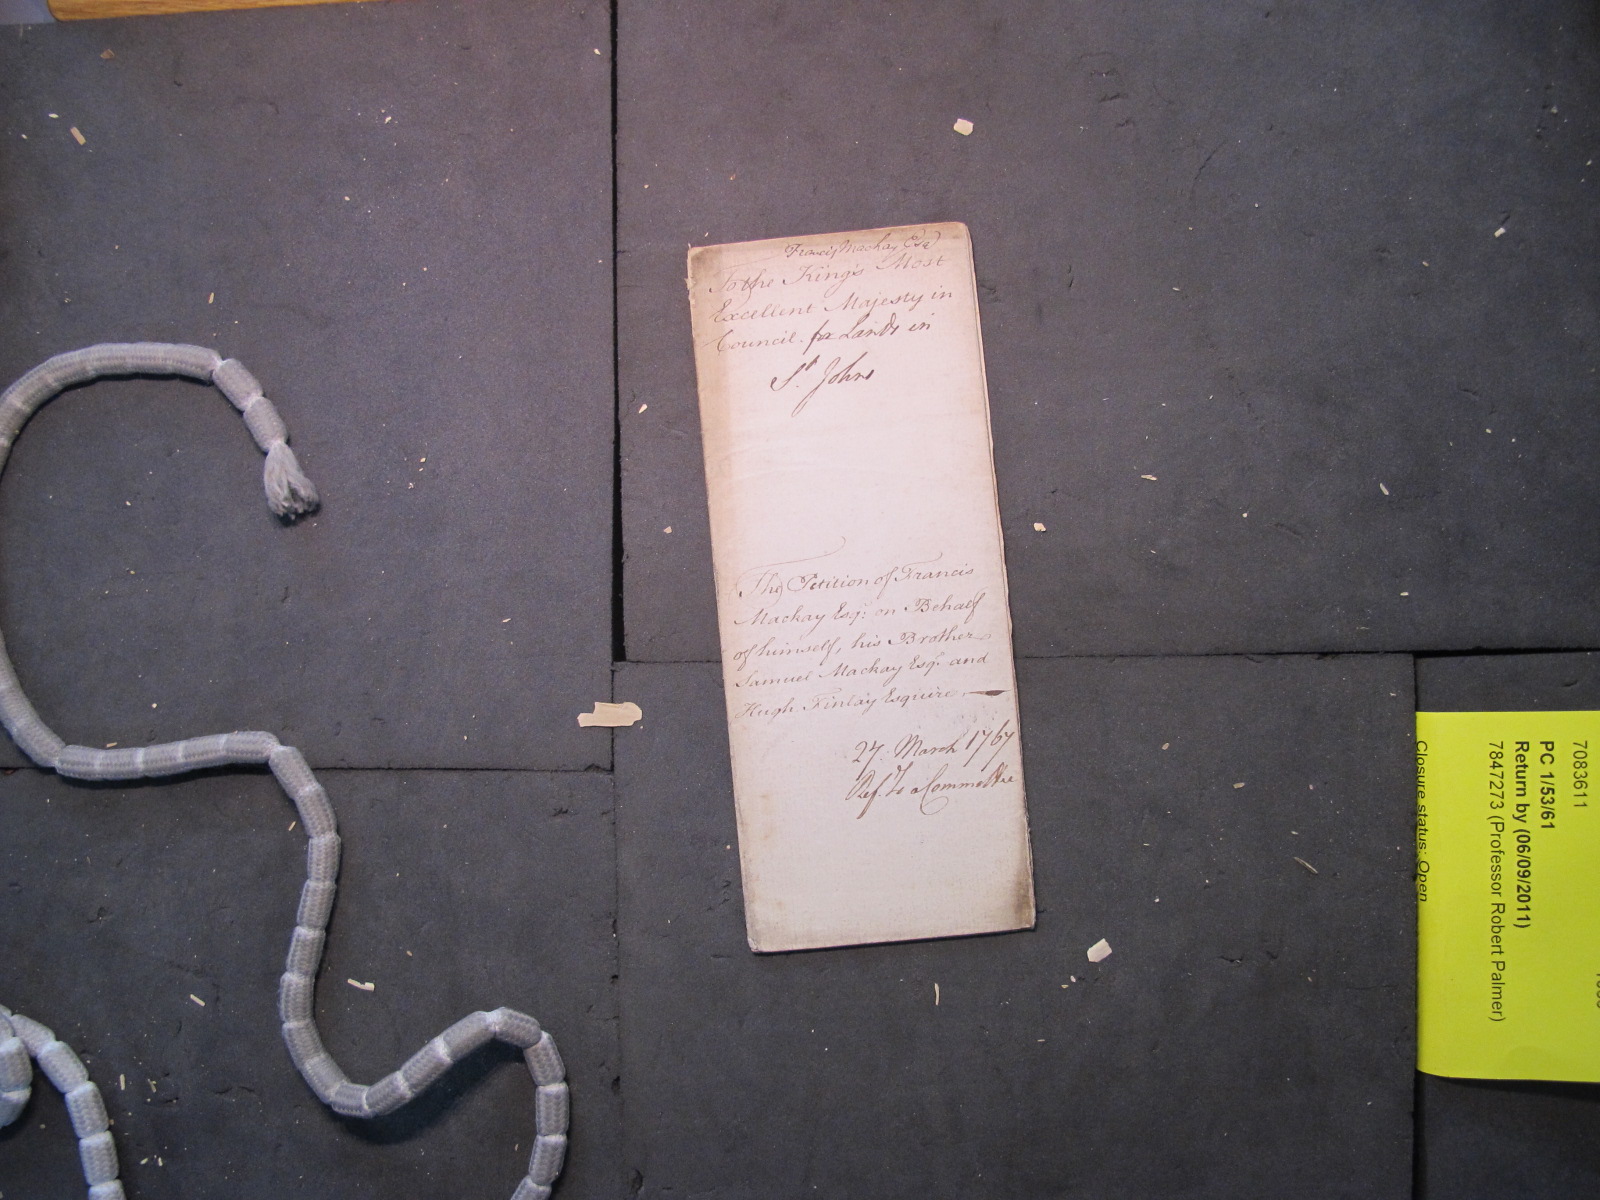 Francis Mackay Esq
To the King's Most
Excellent Majesty in
Council for Lands in
St Johns
The Petition of Francis
Mackay Esqr. on Behalf
of himself, his Brother
Samuel Mackay Esqr. and
Hugh Finlay Esquire —
27. March 1767
Ref. To a Committee
7083611
PC 1/53/61
Return by (06/09/2011)
7847273 (Professor Robert Palmer)
Closure status: Open